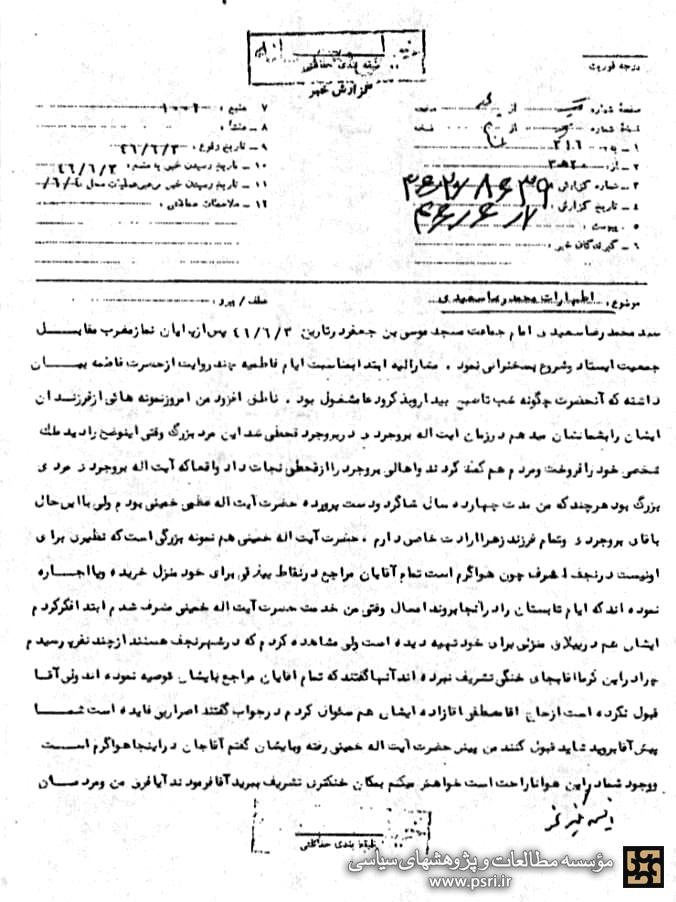 طبقه بندی حفاظتی
گزارش خبر
درجه فوریت
صفحه شماره یک از
نسخه شماره از نسخه
۱ ـ به ۳۱۶
۲ ـ از ۲۰ه۳
۳ ـ شماره گزارش
۴ ـ تاریخ گزارش
۵ ـ پیوست
۶ ـ گیرندگان خبر
۷ منبع ۱۰۰۲
۸ ـ منشأ
۹ ـ تاریخ وقوع ۴۶/۶/۳
۱۰ ـ تاریخ رسیدن خبر بمنبع ۴۶/۶/۳
۱۱ ـ تاریخ رسیدن خبر برهبر عملیات محل
۱۲ ـ ملاحظات حفاظتی
موضوع : اظهارات محمد رضا سعیدی
عطف / پیرو
سید محمد رضا سعیدی امام جماعت مسجد موسی بن جعفر در تاریخ ۴۶/۶/۳ پس از پایان نماز مغرب مقابل
جمعیت ایستاد و شروع بسخنرانی نمود . مشارالیه ابتدا بمناسبت ایام فاطمیه چند روایت از حضرت فاطمه بیان
داشته که آنحضرت چگونه شب تا صبح بیدار و بذکر و دعا مشغول بود . ناطق افزود من امروز نمونه هائی از فرزندان
ایشان را بشما نشان میدهم در زمان آیت اله بروجردی در بروجرد قحطی شد این مرد بزرگ وقتی اینوضع را دید ملک
شخصی خود را فروخت و مردم هم کمک کردند و اهالی بروجرد را از قحطی نجات داد واقعا که آیت اله بروجردی مردی
بزرگ بود هرچند که من مدت چهارده سال شاگرد و دست پرورده حضرت آیت اله عظمی خمینی بودم ولی با این حال
باقای بروجردی و تمام فرزند زهرا ارادت خاصی دارم . حضرت آیت اله خمینی هم نمونه بزرگی است که نظیری برای
او نیست در نجف اشرف چون هوا گرم است تمام آقایان مراجع در نقاط ییلاقی برای خود منزل خریده و یا اجاره
نموده اند که ایام تابستان را در آنجا بروند امسال وقتی من خدمت حضرت آیت اله خمینی مشرف شدم ابتدا فکر کردم
ایشان هم در ییلاق منزلی برای خود تهیه دیده است ولی مشاهده کردم که در شهر نجف هستند از چند نفر پرسیدم
چرا در این گرما اقا بجای خنکی تشریف نبرده اند آنها گفتند که تمام اقایان مراجع بایشان توصیه نموده اند ولی آقا
قبول نکرده است از حاج اقا مصطفی اقازاده ایشان هم سئوال کردم در جواب گفتند اصرار بی فایده است شما
پیش آقا بروید شاید قبول کنند من پیش حضرت آیت اله خمینی رفته و بایشان گفتم آقاجان در اینجا هوا گرم است
و وجود شما در این هوا ناراحت است خواهش میکنم بمکان خنکتری تشریف ببرید آقا فرمودند آیا فرق من و مردمان
طبقه بندی حفاظتی
مؤسسه مطالعات و پژوهشهای سیاسی
www.psri.ir